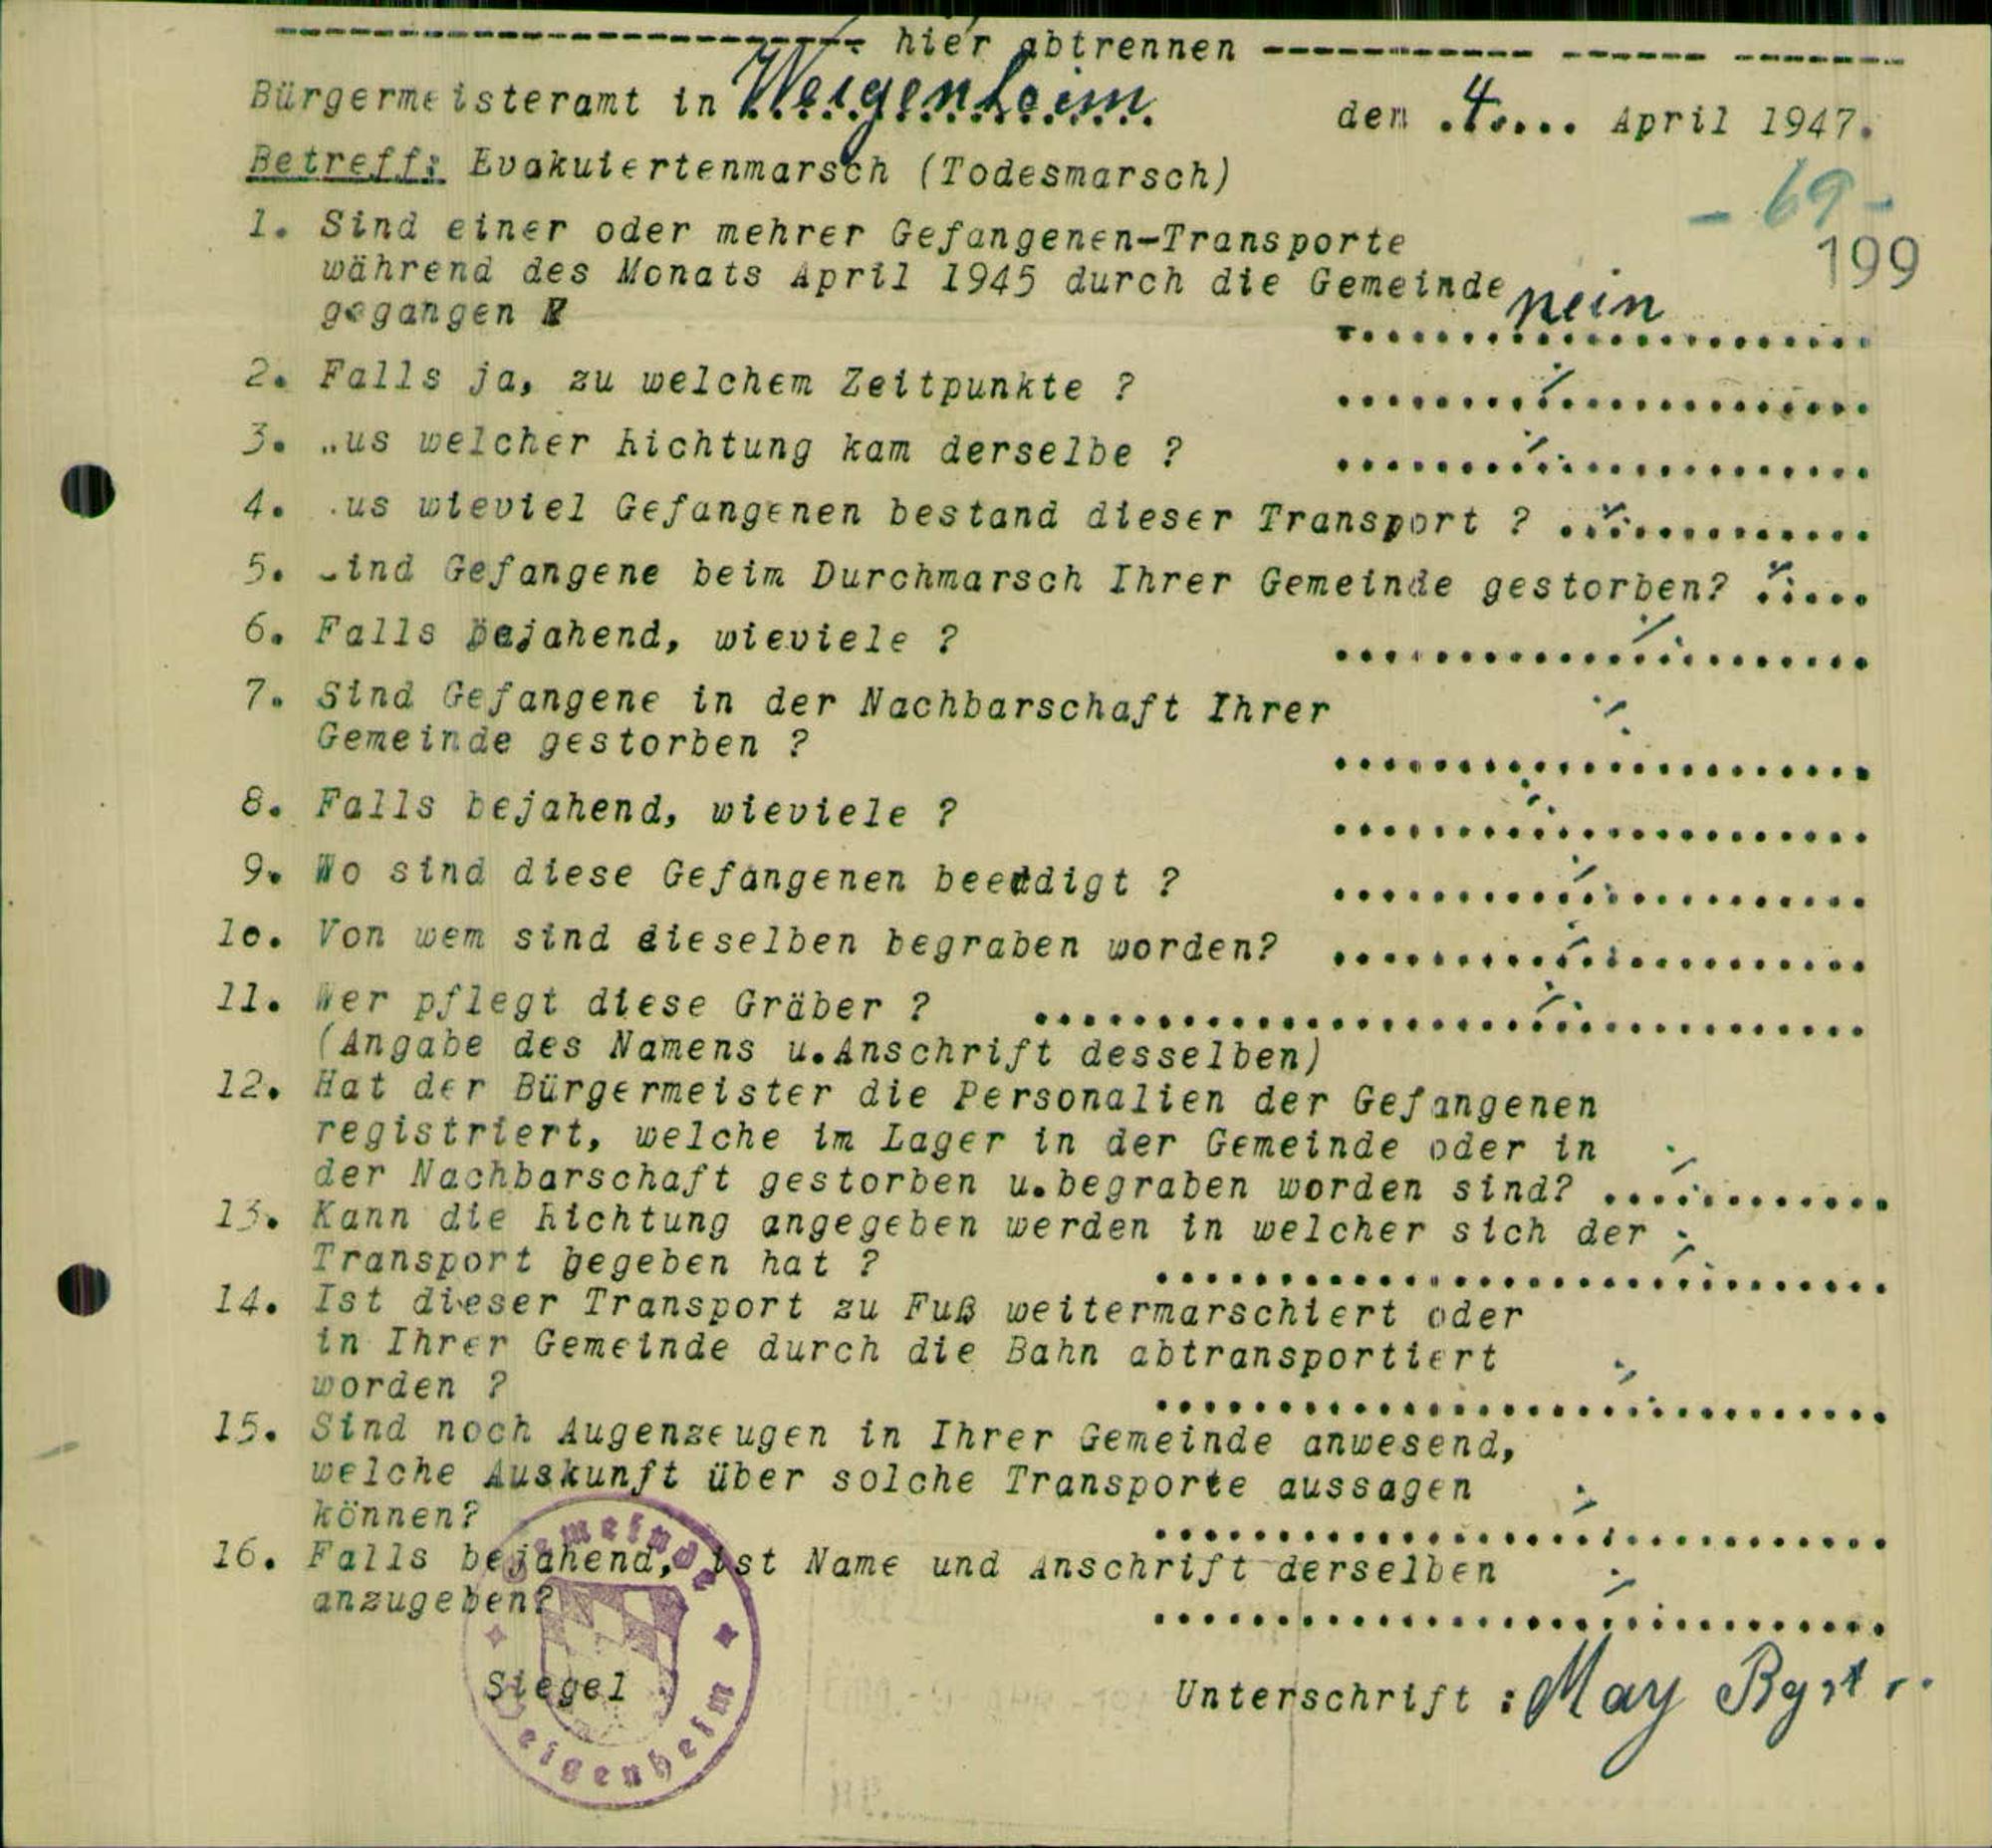 ------------------------ hier abtrennen ----------- ------ -------
Bürgermeisteramt in Weigenheim den 4.... April 1947.
Betreff: Evakuiertenmarsch (Todesmarsch)
- 69 -
199
1. Sind einer oder mehrer Gefangenen-Transporte
während des Monats April 1945 durch die Gemeinde
gegangen ? nein
2. Falls ja, zu welchem Zeitpunkte ? ./.
3. .us welcher Richtung kam derselbe ? ./.
4. .us wieviel Gefangenen bestand dieser Transport ? ./.
5. Sind Gefangene beim Durchmarsch Ihrer Gemeinde gestorben? ./.
6. Falls bejahend, wieviele ? ./.
7. Sind Gefangene in der Nachbarschaft Ihrer
Gemeinde gestorben ? ./.
8. Falls bejahend, wieviele ? ./.
9. Wo sind diese Gefangenen beerdigt ? ./.
10. Von wem sind dieselben begraben worden? ./.
11. Wer pflegt diese Gräber ? ./.
(Angabe des Namens u.Anschrift desselben)
12. Hat der Bürgermeister die Personalien der Gefangenen
registriert, welche im Lager in der Gemeinde oder in
der Nachbarschaft gestorben u.begraben worden sind? ./.
13. Kann die Richtung angegeben werden in welcher sich der
Transport begeben hat ? ./.
14. Ist dieser Transport zu Fuß weitermarschiert oder
in Ihrer Gemeinde durch die Bahn abtransportiert
worden ? ./.
15. Sind noch Augenzeugen in Ihrer Gemeinde anwesend,
welche Auskunft über solche Transporte aussagen
können? ./.
16. Falls bejahend, ist Name und Anschrift derselben
anzugeben? ./.
Gemeinde
Weigenheim
Siegel
Unterschrift : May